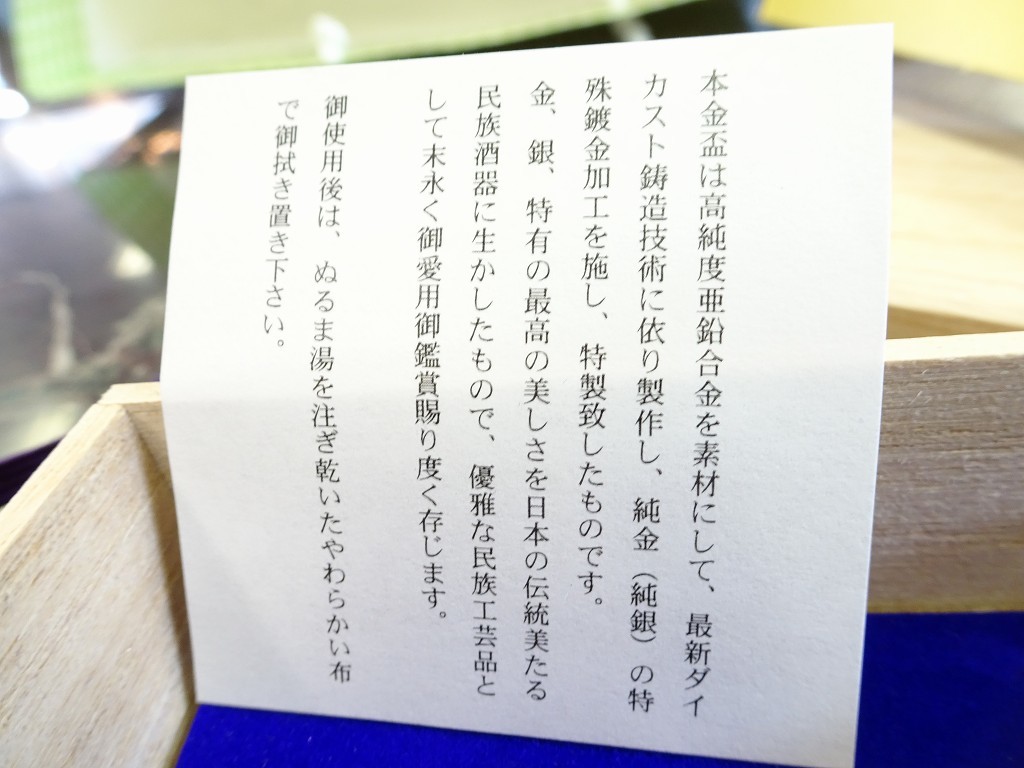 本金盃は高純度亜鉛合金を素材にして、最新ダイ
カスト鋳造技術に依り製作し、純金（純銀）の特
殊鍍金加工を施し、特製致したものです。
金、銀、特有の最高の美しさを日本の伝統美たる
民族酒器に生かしたもので、優雅な民族工芸品と
して末永く御愛用御鑑賞賜り度く存じます。
御使用後は、ぬるま湯を注ぎ乾いたやわらかい布
で御拭き置き下さい。